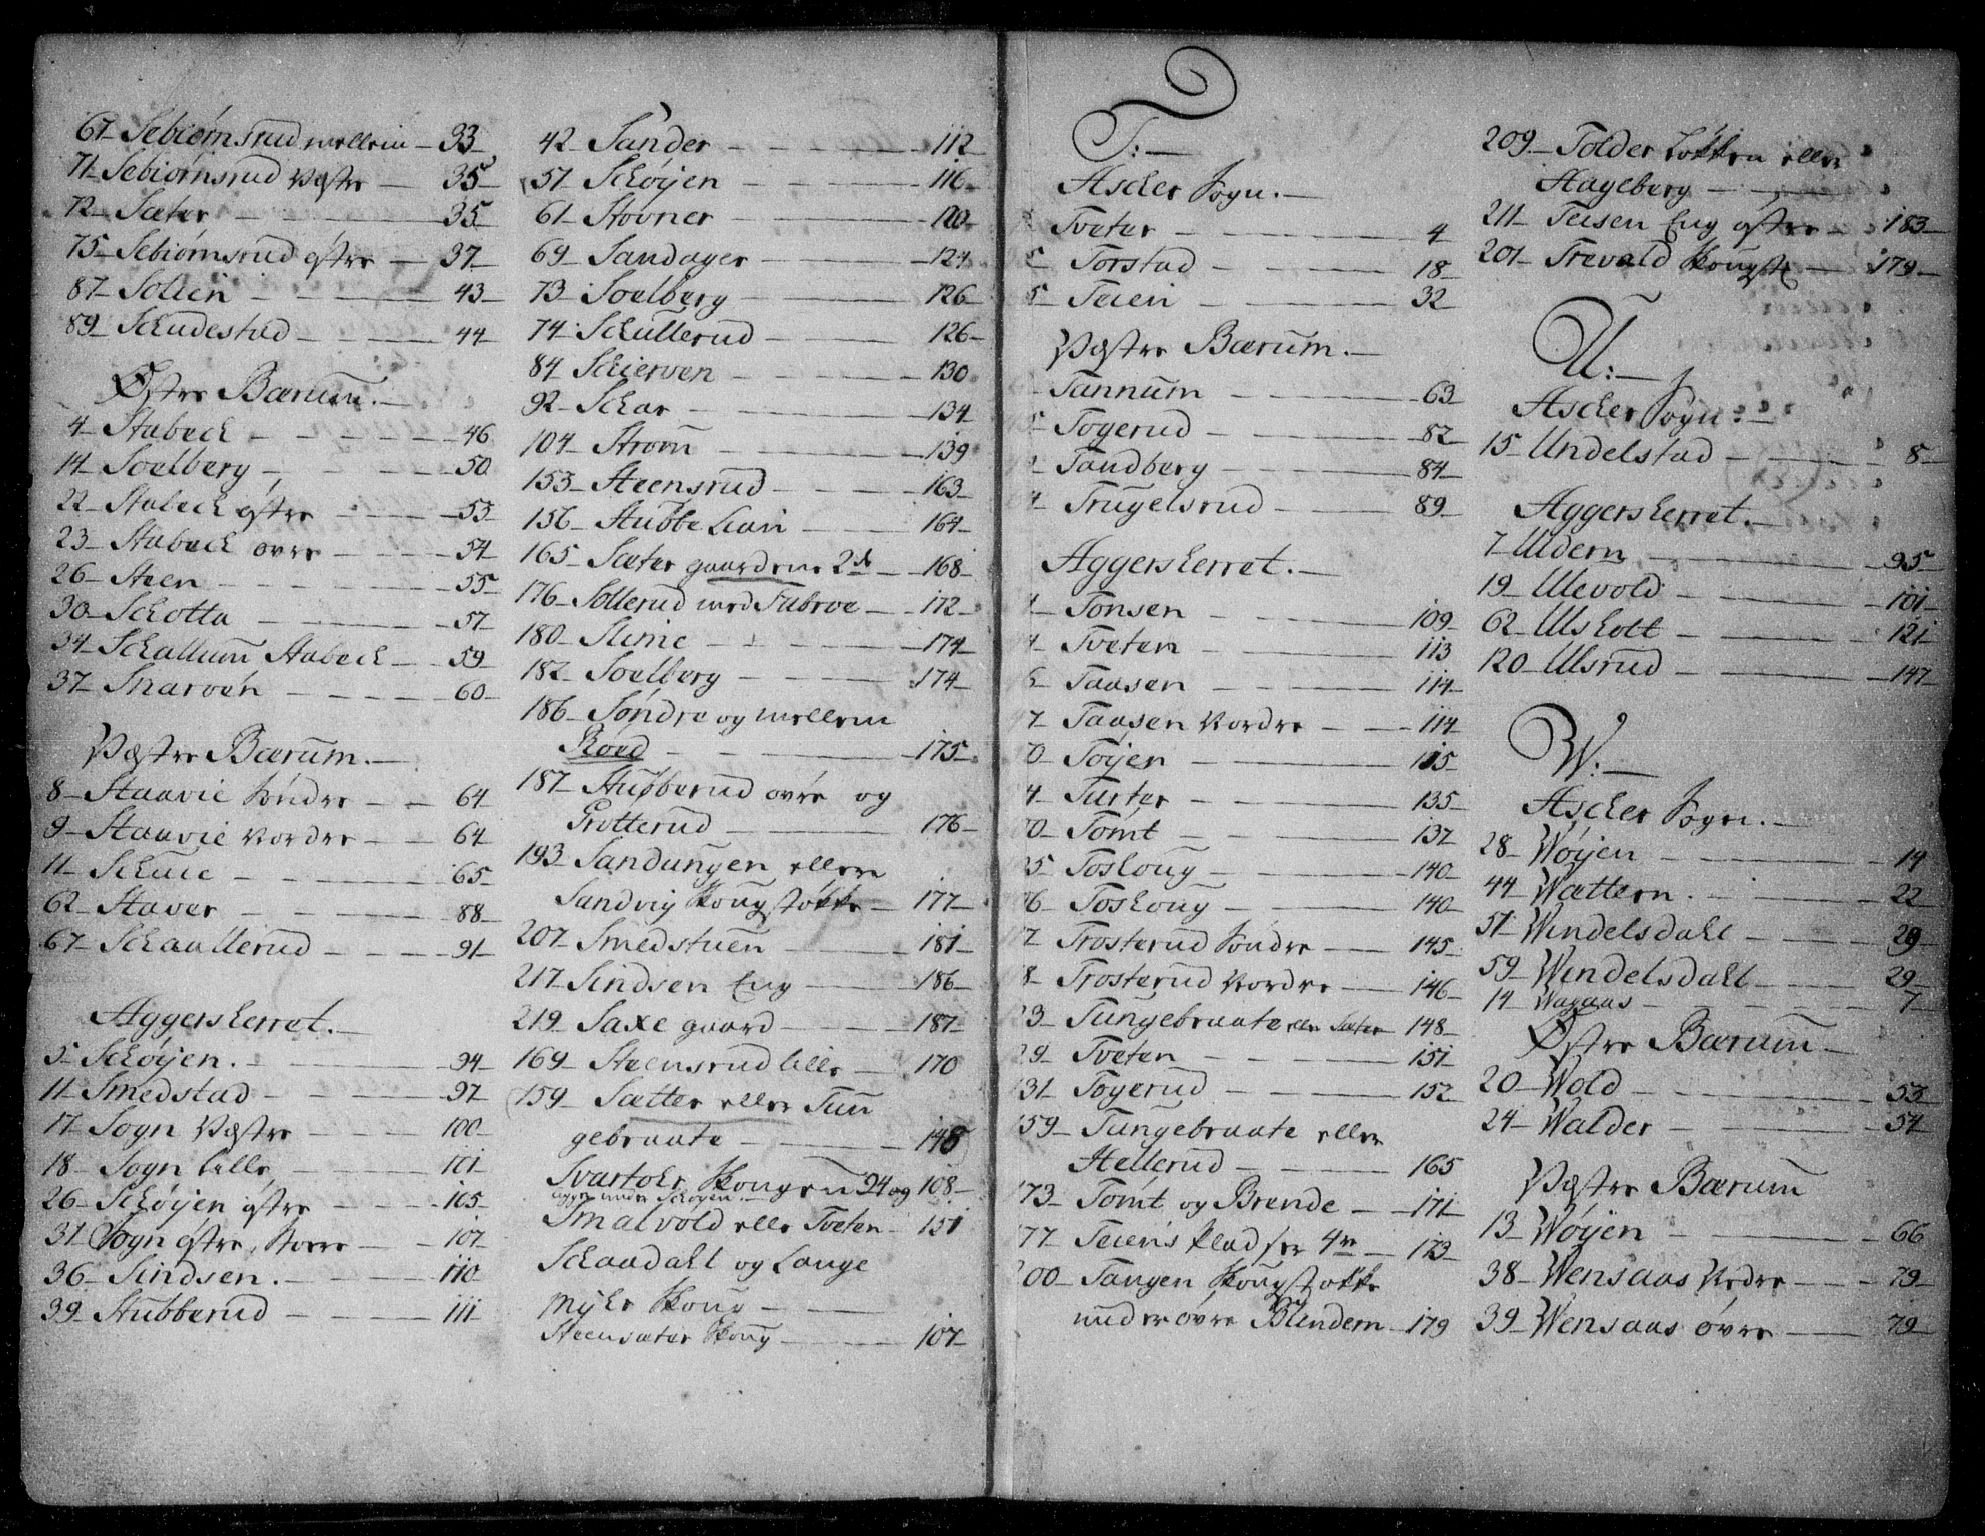 67 - Sebiørnsrud mellem - 33
71 - Sebiørnsrud Vestre - 35
72 - Sæter - 35
75 - Sebiørnsrud østre - 37
87 - Solien - 43
89 - Schudestad - 44
Østre Bærum.
4 - Stabeck - 46
14 - Soelberg - 50
22 - Stabeck østre - 53
23 - Stabeck øvre - 54
26 - Steen - 55
30 - Schotta - 57
34 - Schallum Stabeck - 59
37 - Snarøen - 60
Vestre Bærum.
8 - Staavie søndre - 64
9 - Staavie Nordre - 64
11 - Schuie - 65
62 - Staver - 88
67 - Schaallerud - 91
Aggersherret.
5 - Schøyen. - 94
11 - Smedstad - 97
17 - Sogn Vestre - 100
18 - Sogn lille - 101
26 - Schøyen østre - 105
31 - Sogn østre, Store - 107
36 - Sindsen. - 110
39 - Stubberud - 111
42 - Sander - 112
57 - Schøyen - 116
61 - Stovner - 120
69 - Sandager - 124
73 - Soelberg - 126
74 - Schullerud - 126
84 - Schierven - 130
92 - Schar - 134
104 - Strøm - 139
153 - Steensrud - 163
156 - Stubbe Lian - 164
165 - Sæter gaardene 2de - 168
176 - Sollerud med Fubroe - 172
180 - Slime - 174
182 - Soelberg - 174
186 - Søndre og mellem
Roed - 175
187 - Stubberud øvre og
Grotterud - 176
193 - Sandungen eller
Sandvig Skougstøkke - 177
207 - Smedstuen - 181
217 - Sindsen Eng - 186
219 - Saxe gaard - 187
169 - Steensrud lille - 170
159 - Sætter eller Tun
gebraate - 148
Svartoer Skougen 94 og 108
ligger under Schøyen
Smalvold eller Tveten - 151
Schaadahl og Lange
Myhr Skoug
Steensæter Skoug - 107
T:
Ascher Sogn.
Tveter - 4
Torstad - 18
Teien - 32
Vestre Bærum.
Tannum - 63
Togerud - 82
Tandberg - 84
Trugelsrud - 89
Aggersherret.
Tonsen - 109
Tveten - 113
Taasen - 114
Taasen Nordre - 114
Tøyen - 115
Turter - 135
Tømt - 137
Toshoug - 140
Toshoug - 140
Trosterud søndre - 145
Trosterud Nordre - 146
23 - Tungebraate eller Sæter 148
29 - Tveten - 151
131 - Togerud - 152
159 - Tungebraate eller
Hellerud - 165
173 - Tømt og Brende - 171
177 - Teiens Pladser 4re - 173
200 - Tangen Skougstøkke
under øvre Blindern - 179
209 - Tolder Løkken eller
Hageberg
211 - Teisen Eng østre - 183
201 - Trevald Skougst - 179
U:
Ascher Sogn:
15 - Undelstad - 8
Aggersherret.
7 - Uldern - 95
19 - Ulevold - 101
62 - Ulsholt - 121
120 - Ulsrud - 147
W:
Ascher Sogn.
28 - Wøyen - 14
44 - Wættern. - 22
57 - Windelsdahl - 29
59 - Windelsdahl - 29
14 Wagaas - 7
Østre Bærum
20 - Wold - 53
24 - Walder - 54
Vestre Bærum
13 - Wøyen - 66
38 - Wensaas Nedre - 79
39 - Wensaas øvre - 79